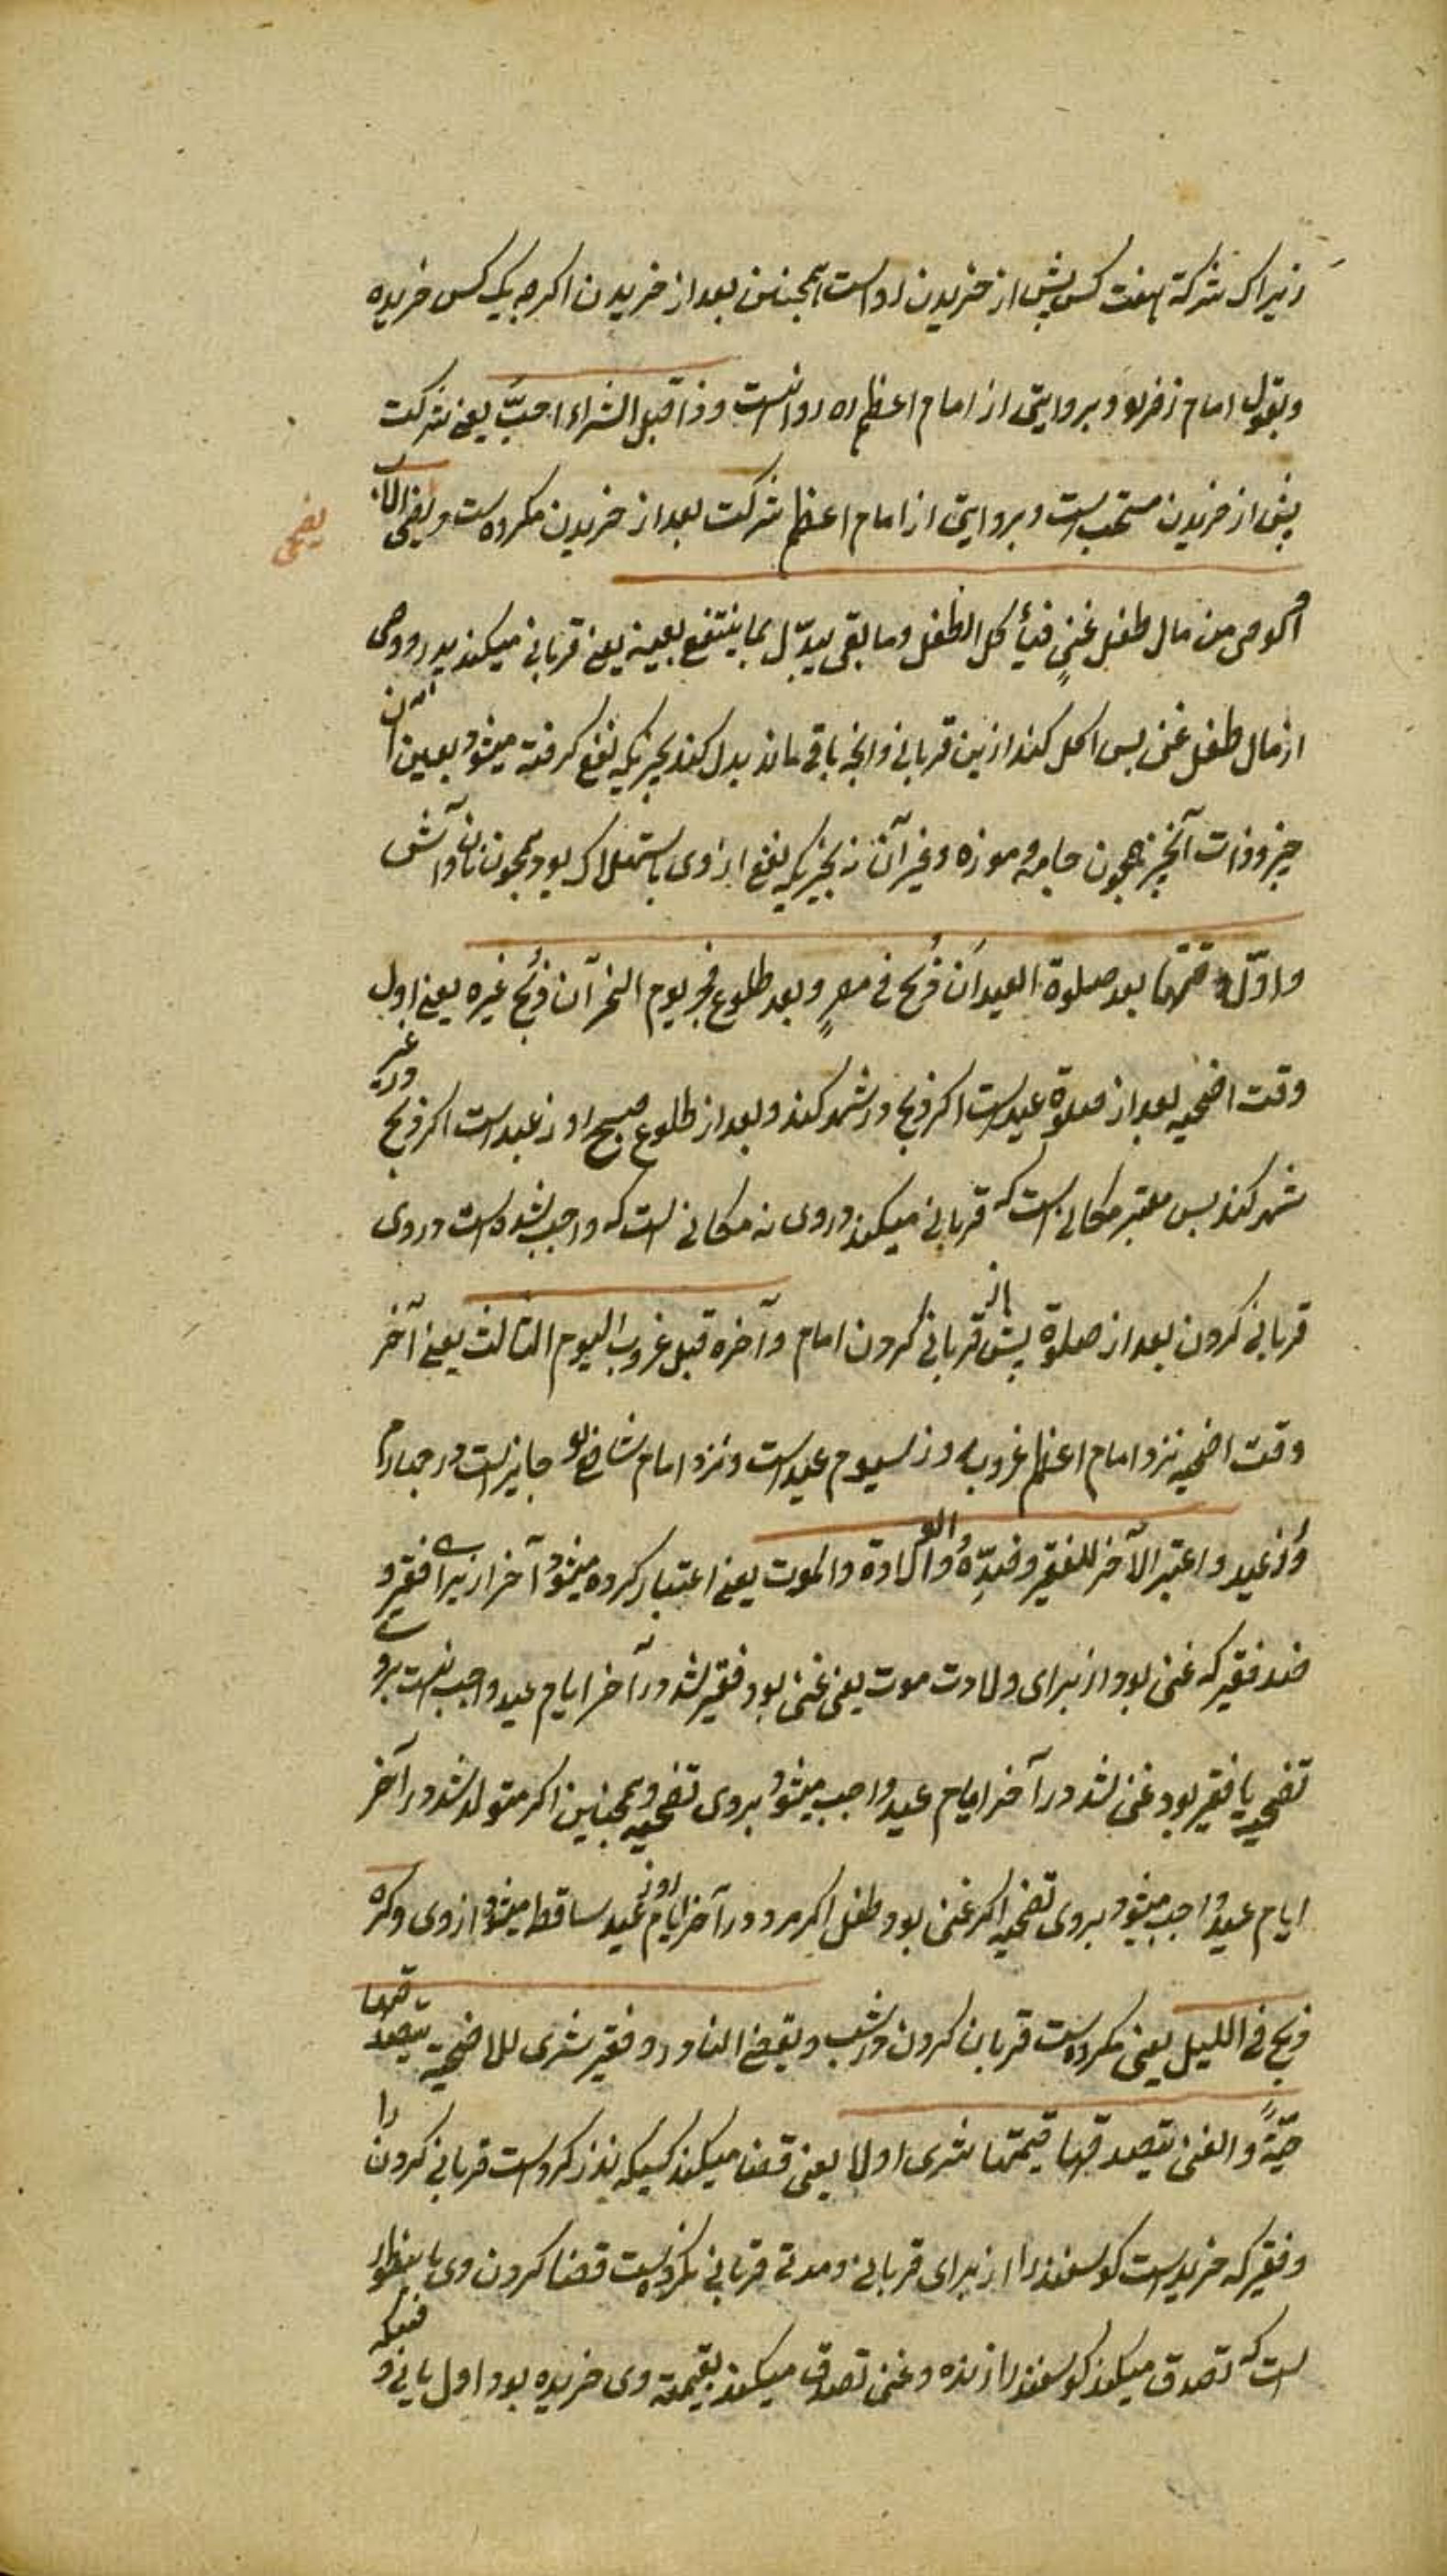 زیراک شرکة هفت کس پیش از خریدن رواست همچنین بعد از خریدن اکرچه یک کس خریده
وبقول امام زفر و بروایتی از امام اعظم ره روانیست وذا قبل الشراء احبّ یعنی شرکت
پیش از خریدن مستحب است وبروایتی از امام اعظم شرکت بعد از خریدن مکروه ست ویضحی الاب
یضحی
او وصی من مال طفل غنیٍ فیأکل الطفل وما بقی یبدّل بما ینتفع بعینه یعنی قربانی میکند پدر و وصی
از مال طفل غنی پس اکل کند ازین قربانی وانچه باقی ماند بدل کند بچیزیکه نفع کرفته میشود بعین آن
چیز وذات آنچیز همچون جامه وموزه وغیر آن نه بچیزیکه نفع از وی باستهلاک بود همچون نان وآش
واوّل وقتها بعد صلوة العید ان ذُبح فی مصرٍ وبعد طلوع فجر یوم النحر ان ذُبح غیره یعنی اول
وقت اضحیه بعد از صلوة عید است اکر ذبح در شهر کند وبعد از طلوع صبح روز عید است اکر ذبح در غیر
شهر کند پس معتبر مکانی است که قربانی میکند در وی نه مکانی است که واجب شده است در وی
قربانی کردن بعد از صلوة پیش از قربانی کردن امام وآخره قبل غروب الیوم الثالث یعنی آخر
وقت اضحیه نزد امام اعظم غروب روز سیوم عید است ونزد امام شافعی جایز است در چهارم
روز عید واعتبر الآخر للفقیر وضدِّه والولادة والموت یعنی اعتبار کرده میشود آخر از برای فقیر و
ضد فقیر که غنی بود از برای ولادت موت یعنی غنی بود فقیر شد در آخر ایام عید واجب نیست بروی
تضحیه یا فقیر بود غنی شد در آخر ایام عید واجب میشود بروی تضحیه وهمچنین اکر متولد شد در آخر
ایام عید واجب میشود بروی تضحیه اکر غنی بود طفل اکر مرد در آخر ایام روز عید ساقط میشود از وی وکره
ذبح فی اللیل یعنی مکروه ست قربان کردن در شب ویقضی الناذر وفقیر شری للاضحیة بتصدقها
حیّةً والغنی بتصدق قیمتها شری اولا یعنی قضا میکند کسیکه نذر کرده است قربانی کردن را
وفقیر که خریده است کوسفند را از برای قربانی ومدتی قربانی نکرده است قضا کردن وی باینطور
است که تصدق میکند کوسفند را زنده وغنی تصدق میکند بقیمة وی خریده بود اول یا نی